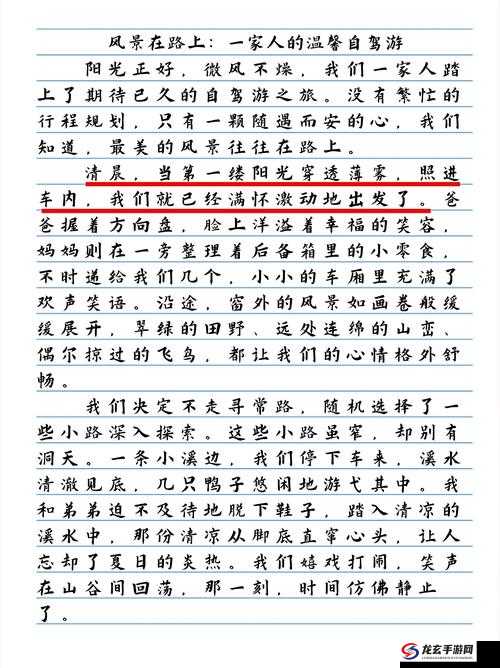 风景在路上：一家人的温馨自驾游
阳光正好，微风不燥，我们一家人踏
上了期待已久的自驾游之旅。没有繁忙的
行程规划，只有一颗随遇而安的心，我们
知道，最美的风景往往在路上。
清晨，当第一缕阳光穿透薄雾，照进
车内，我们就已经满怀激动地出发了。爸
爸握着方向盘，脸上洋溢着幸福的笑容，
妈妈则在一旁整理着后备箱里的小零食，
不时递给我们几个，小小的车厢里充满了
欢声笑语。沿途，窗外的风景如画卷般缓
缓展开，翠绿的田野、远处连绵的山峦、
偶尔掠过的飞鸟，都让我们的心情格外舒
畅。
我们决定不走寻常路，随机选择了一
些小路深入探索。这些小路虽窄，却别有
洞天。一条小溪边，我们停下车来，溪水
清澈见底，几只鸭子悠闲地游弋其中。我
和弟弟迫不及待地脱下鞋子，踏入清凉的
溪水中，那份清凉从脚底直窜心头，让人
忘却了夏日的炎热。我们嬉戏打闹，笑声
在山谷间回荡，那一刻，时间仿佛静止
了。
龙玄手游网